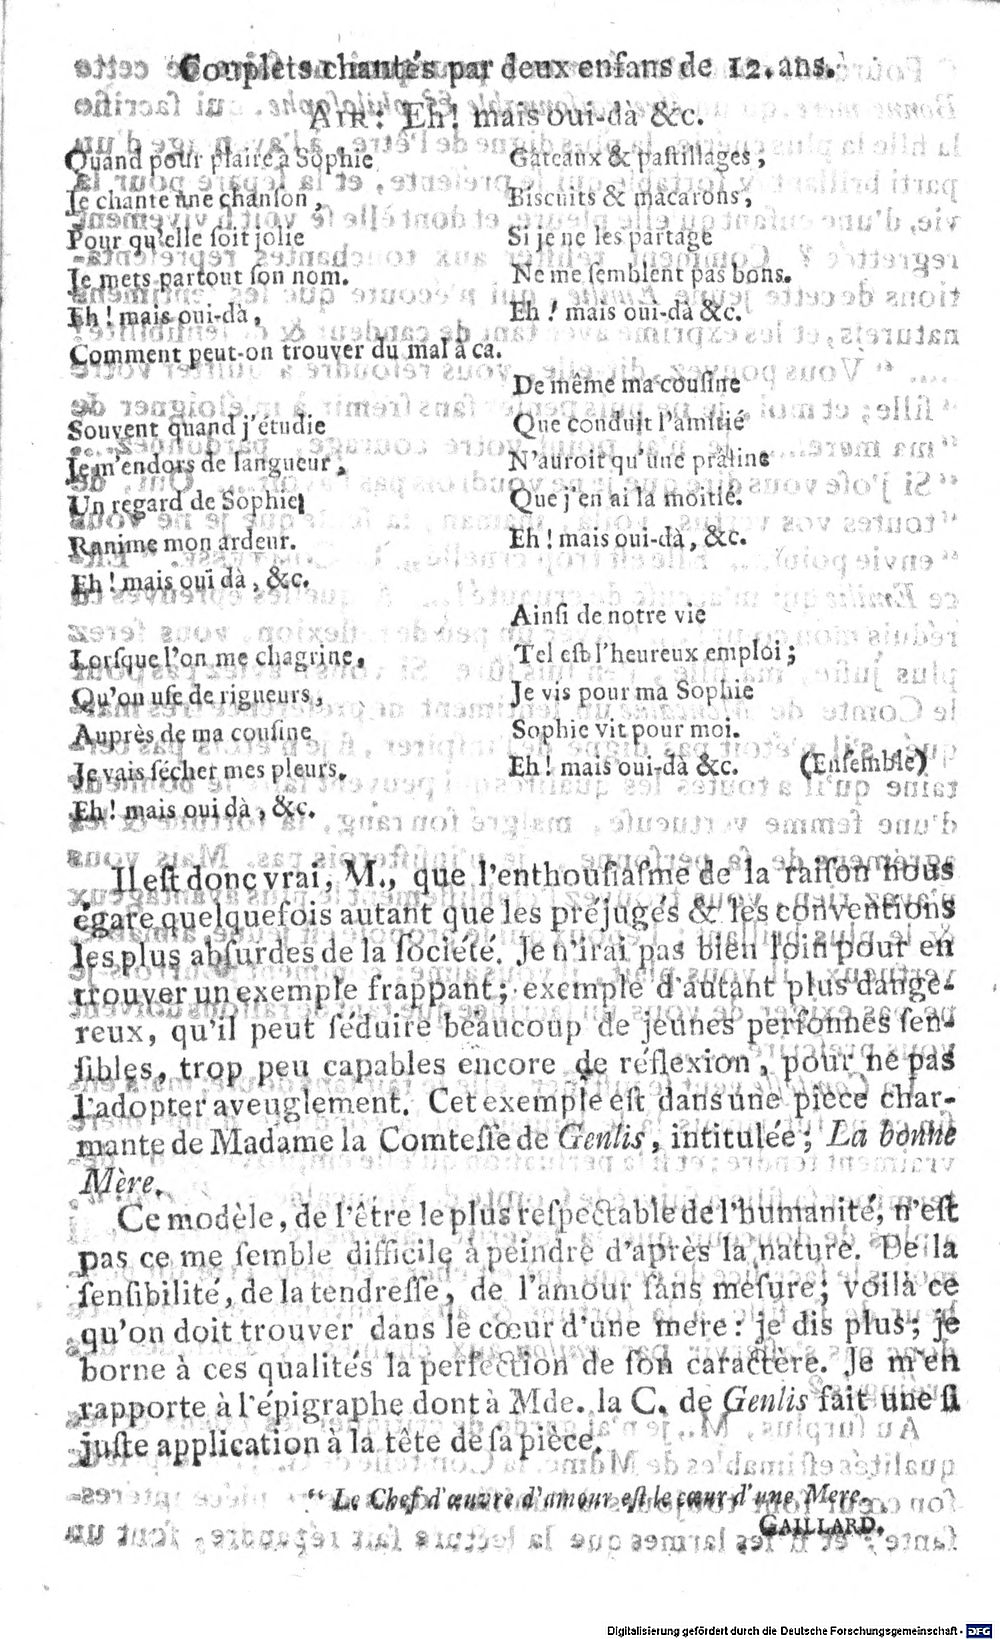 Couplets chantés par deux enfans de 12. ans.
AIR: Eh! mais oui-dà &c.
Quand pour plaire à Sophie
Je chante une chanson,
Pour qu'elle soit jolie
Je mets partout son nom.
Eh! mais oui-dà,
Comment peut-on trouver du mal à ca.
Souvent quand j'étudie
Je m'endors de langueur,
Un regard de Sophie
Ranime mon ardeur.
Eh! mais oui dà, &c.
Lorsque l'on me chagrine,
Qu'on use de rigueurs,
Auprès de ma cousine
Je vais sécher mes pleurs.
Eh! mais oui dà, &c.
Gâteaux & pastillages,
Biscuits & macarons,
Si je ne les partage
Ne me semblent pas bons.
Eh! mais oui-dà &c.
De même ma cousine
Que conduit l'amitié
N'auroit qu'une praline
Que j'en ai la moitié.
Eh! mais oui-dà, &c.
Ainsi de notre vie
Tel est l'heureux emploi;
Je vis pour ma Sophie
Sophie vit pour moi.
Eh! mais oui-dà &c. (Ensemble)
Il est donc vrai, M., que l'enthousiasme de la raison nous
égare quelquefois autant que les préjugés & les conventions
les plus absurdes de la société. Je n'irai pas bien loin pour en
trouver un exemple frappant; exemple d'autant plus dange-
reux, qu'il peut séduire beaucoup de jeunes personnes sen-
sibles, trop peu capables encore de réflexion, pour ne pas
l'adopter aveuglement. Cet exemple est dans une pièce char-
mante de Madame la Comtesse de Genlis, intitulée; La bonne
Mère.
Ce modèle, de l'être le plus respectable de l'humanité, n'est
pas ce me semble difficile à peindre d'après la nature. De la
sensibilité, de la tendresse, de l'amour sans mesure; voilà ce
qu'on doit trouver dans le cœur d'une mere: je dis plus; je
borne à ces qualités la perfection de son caractère. Je m'en
rapporte à l'épigraphe dont à Mde. la C. de Genlis fait une si
juste application à la tête de sa pièce.
" Le Chef d'œuvre d'amour est le cœur d'une Mere.
GAILLARD.
Digitalisierung gefördert durch die Deutsche Forschungsgemeinschaft - DFG